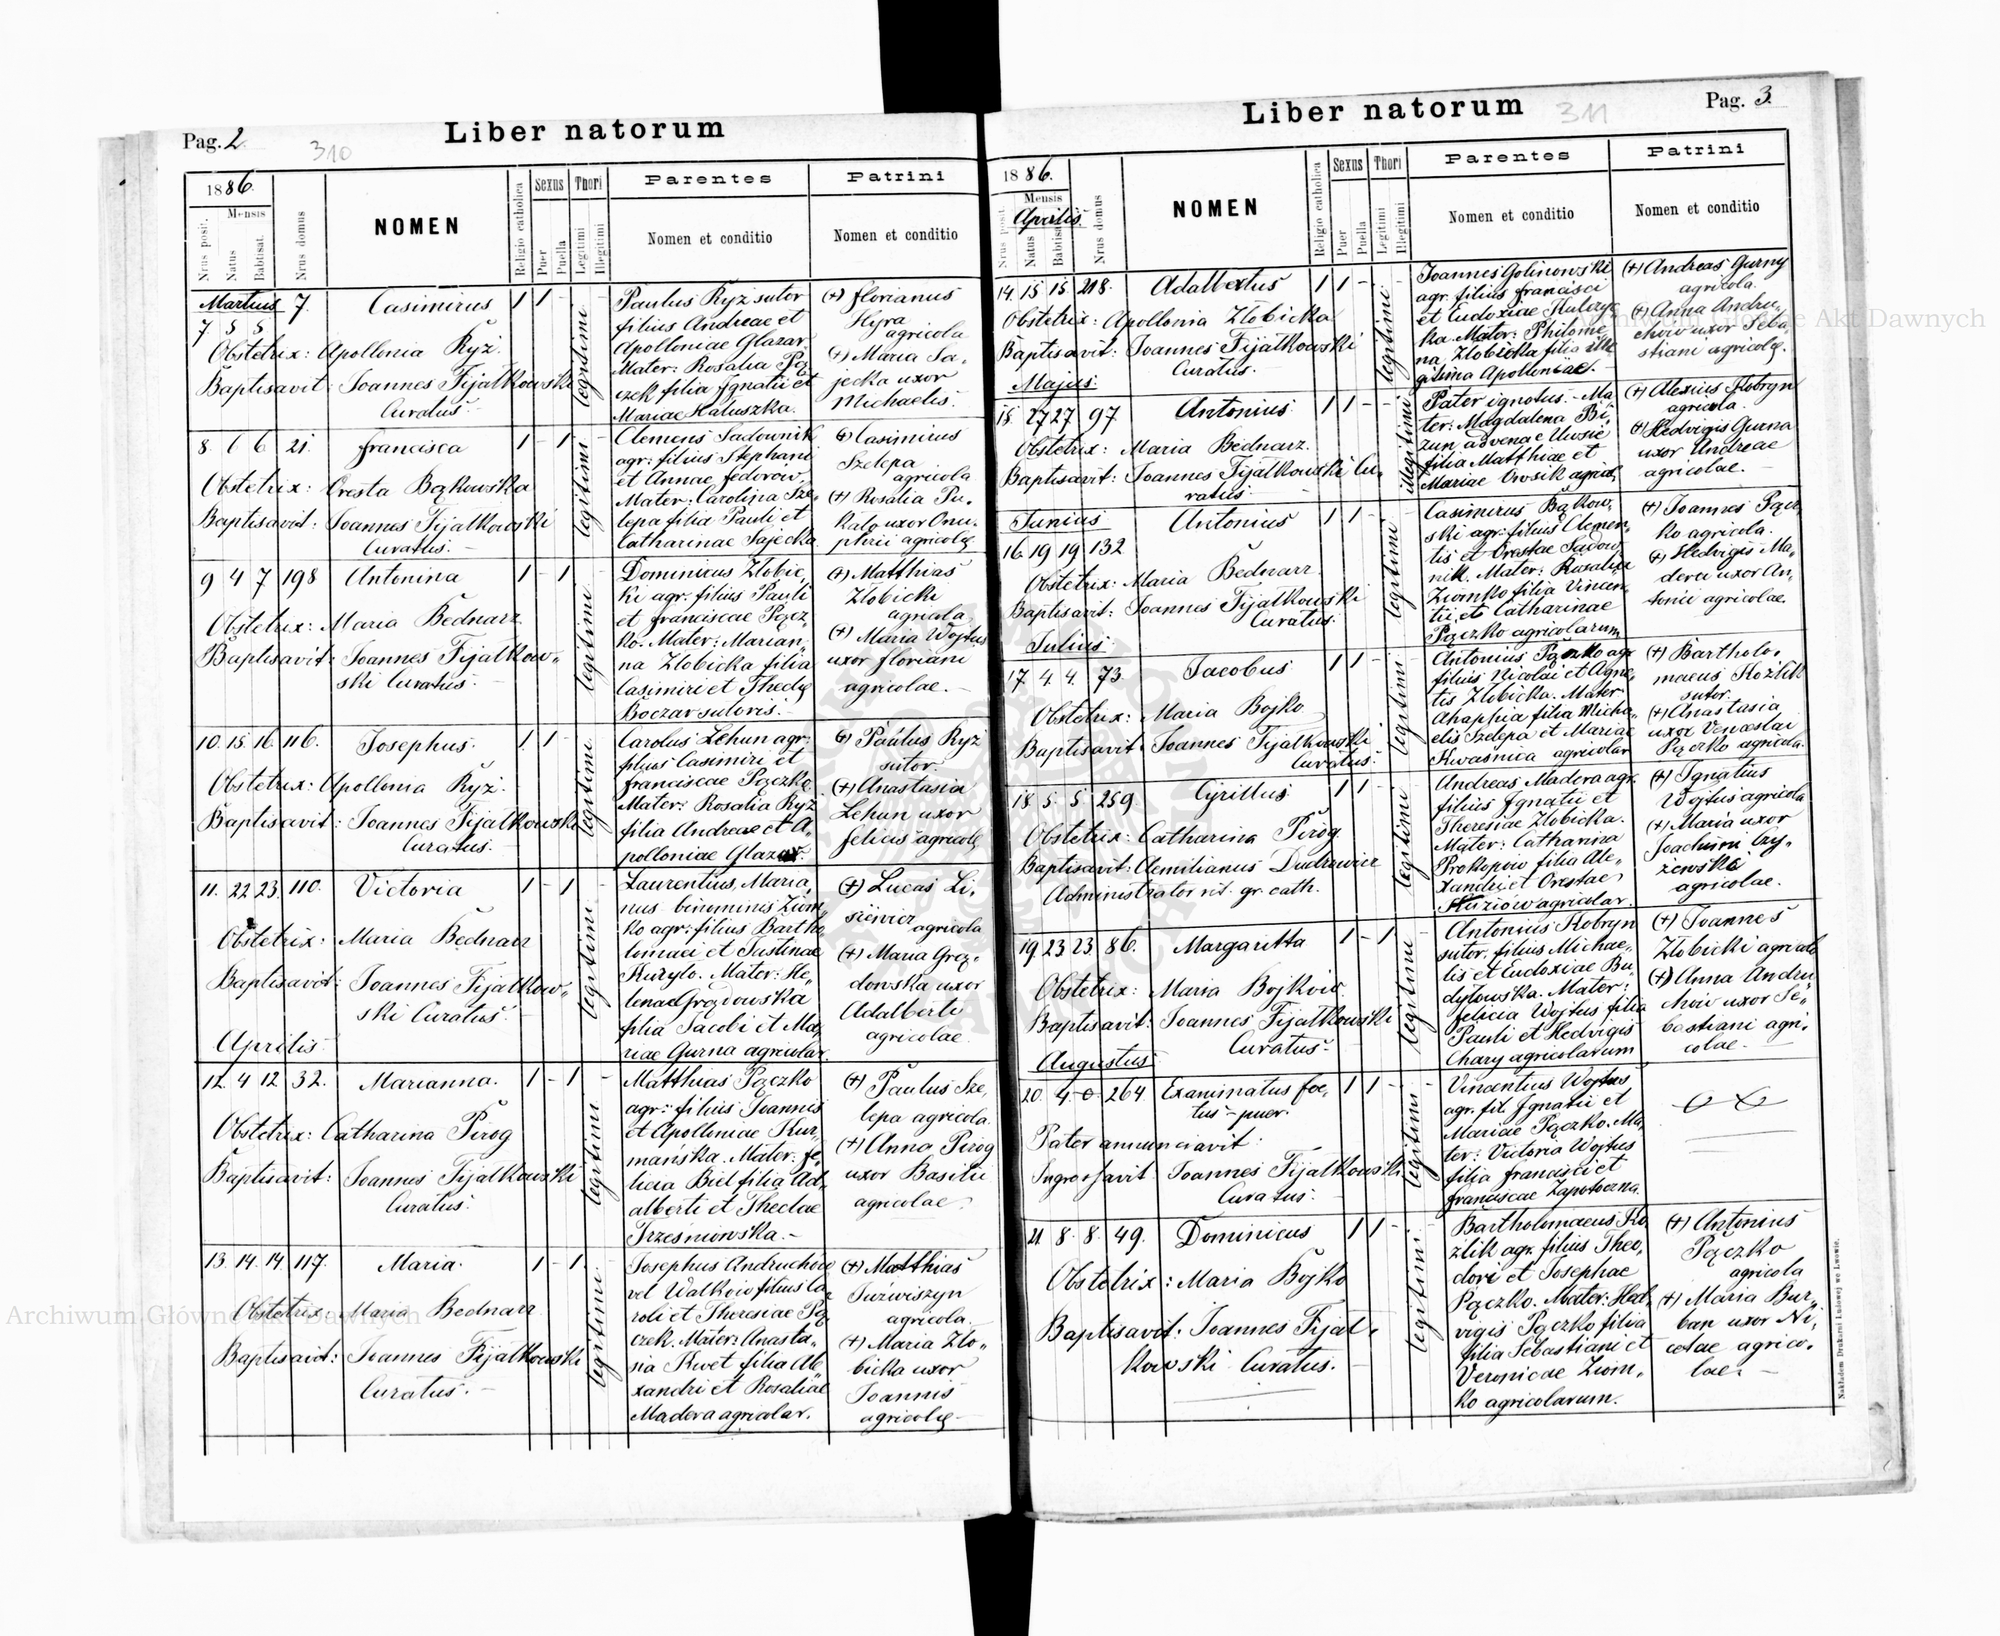 Pag. 2.
310
Liber natorum
1886.
Mensis
Nrus posit.
Natus
Babtisat.
Nrus domus
NOMEN
Religio catholica
Sexus
Puer
Puella
Thori
Legitimi
Illegitimi
Parentes
Nomen et conditio
Patrini
Nomen et conditio
Martius
7 5 5 7. Casimirus 1 1 -
Obstetrix: Apollonia Ryż.
Baptisavit: Joannes Fijałkowski
Curatus.-
legitimi
Paulus Ryż sutor
filius Andreae et
Apolloniae Glazar.
Mater: Rosalia Pą
czek filia Jgnatii et
Mariae Hałuszka.
(+) Florianus
Hyra
agricola
(+) Maria Sa-
jecka uxor
Michaelis.
8. 6 6 21. Francisca 1 - 1
Obstetrix: Oresta Bąkowska
Baptisavit: Joannes Fijałkowski
Curatus.-
legitimi
Clemens Sadownik
agr: filius Stephani
et Annae Fedorów.
Mater: Carolina Sze-
lepa filia Pauli et
Catharinae Sajecka.
(+) Casimirus
Szelepa
agricola
(+) Rosalia Pu-
kało uxor Onu-
phrii agricolę
9 4 7 198 Antonina 1 - 1
Obstetrix: Maria Bednarz
Baptisavit: Joannes Fijałkow-
ski Curatus.-
legitimi
Dominicus Złobic-
ki agr: filius Pauli
et Franciscae Pącz-
ko. Mater: Marian-
na Złobicka filia
Casimiri et Theclę
Boczar sutoris.-
(+) Matthias
Złobicki
agricola
(+) Maria Wojtus
uxor Floriani
agricolae.-
10. 15. 16. 116. Josephus. 1 1 -
Obstetrix: Apollonia Ryż.
Baptisavit: Joannes Fijałkowski
Curatus.-
legitimi
Carolus Lehun agr:
filius Casimiri et
Franciscae Pączko.
Mater: Rosalia Ryż
filia Andreae et A-
polloniae Glazar.
(+) Paulus Ryż
sutor
(+) Anastasia
Lehun uxor
Felicis agricolę
11. 22 23. 110. Victoria 1 - 1 -
Obstetrix: Maria Bednarz
Baptisavit: Joannes Fijałkow-
ski Curatus.
legitimi
Laurentius, Maria-
nus binominis Ziom-
ko agr: filius Bartho
lomaei et Justinae
Kuryło. Mater: He-
lenae Grozdowska
filia Jacobi et Ma-
riae Gurna agricolar.
(+) Lucas Li-
siewicz
agricola
(+) Maria Groz-
dowska uxor
Adalberti
agricolae.
Aprilis.
12. 4 12. 32. Marianna. 1 - 1 -
Obstetrix: Catharina Piróg
Baptisavit: Joannes Fijałkowski
Curatus.
legitimi
Matthias Pączko
agr: filius Joannis
et Apolloniae Kur-
mańska. Mater: Fe-
licia Biel filia Ad-
alberti et Theclae
Trześniowska.-
(+) Paulus Sze-
lepa agricola.
(+) Anna Piróg
uxor Basilii
agricolae.
13. 14. 14. 117. Maria. 1 - 1.
Obstetrix: Maria Bednarz
Baptisavit: Joannes Fijałkowski
Curatus.-
legitimi
Josephus Andruchów
vel Walków filius Ca-
roli et Theresiae Pą
czek. Mater: Anasta-
sia Kwet filia Ale
xandri et Rosaliae
Madera agricolar.
(+) Matthias
agricola.
(+) Maria Zło-
bicka uxor
Joannis
agricolę-
Pag. 3.
311
Liber natorum
1886.
Mensis
Aprilis.
Nrus posit.
Natus
Babtisat.
Nrus domus
NOMEN
Religio catholica
Sexus
Puer
Puella
Thori
Legitimi
Illegitimi
Parentes
Nomen et conditio
Patrini
Nomen et conditio
14. 15 15. 218. Adalbertus 1 1 - -
Obstetrix: Apollonia Złobicka
Baptisavit: Joannes Fijałkowski
Curatus.-
legitimi
Joannes Golinowski
agr. filius Francisci
et Eudoxiae Kulczyc
ka. Mater: Philome-
na Złobicka filia ille
gitima Apolloniae.
(+) Andreas Gurny
agricola.
(+) Anna Andru-
chów uxor Seba-
stiani agricolę.
Majus.
15. 27 27 97 Antonius. 1 1 - -
Obstetrix: Maria Bednarz.
Baptisavit: Joannes Fijałkowski Cu-
ratus.
illegitimi
Pater ignotus. - Ma
ter: Magdalena Bi-
zun advena e Uwsie
filia Matthiae et
Mariae Owsik agricol.
(+) Alexius Kobryn
agricola.
(+) Hedvigis Gurna
uxor Andreae
agricolae.-
Junius
16. 19 19 132 Antonius 1 1 - -
Obstetrix: Maria Bednarz
Baptisavit: Joannes Fijałkowski
Curatus.
legitimi
Casimirus Bąkow-
ski agr. filius Clemen-
tis et Orestae Sadow-
nik. Mater: Rosalia
Ziomko filia Vincen-
tii et Catharinae
Pączko agricolarum
(+) Joannes Pącz-
ko agricola.
(+) Hedvigis Ma-
dera uxor An-
tonii agricolae.
Julius.
17 4. 4. 73. Jacobus 1 1 - -
Obstetrix: Maria Bojko
Baptisavit: Joannes Fijałkowski
Curatus.
legitimi
Antonius Pączko agr
filius Nicolai et Agne-
tis Złobicka. Mater
Ahaphia filia Micha-
elis Szelepa et Mariae
Kwaśnica agricolar
(+) Bartholo-
maeus Kozlik
sutor.
(+) Anastasia
uxor Venceslai
Pączko agricola.
18. 5. 5. 259. Cyrillus 1 1 - -
Obstetrix: Catharina Piróg
Baptisavit: Aemilianus Dudrowicz
Administrator rit. gr. cath.
legitimi
Andreas Madera agr.
filius Jgnatii et
Theresiae Złobicka.
Mater: Catharina
Prokopów filia Ale-
xandri et Orestae
agricolar.
(+) Jgnatius
Wojtus agricola
(+) Maria uxor
Joachimi Czy-
żewski
agricolae.
19. 23. 23. 86. Margaritta 1 - 1 -
Obstetrix: Maria Bojków
Baptisavit: Joannes Fijałkowski
Curatus.-
legitimi
Antonius Kobryn
sutor, filius Michae-
lis et Eudoxiae Bu-
dyłowska. Mater:
Felicia Wojtus filia
Pauli et Hedvigis
Chary agricolarum
(+) Joannes
Złobicki agricola
(+) Anna Andru
chów uxor Se-
bastiani agri-
colae.-
Augustus
20. 4. 0. 264 Exanimatus foe-
tus - puer. 1 1 - -
Pater annunciavit:
Ingrossavit Joannes Fijałkowski
Curatus.
legitimi
Vincentius Wojtus
agr. fil. Jgnatii et
Mariae Pączko. Ma-
ter: Victoria Wojtus
filia Francisci et
Franciscae Zapotoczna.
21. 8. 8. 49. Dominicus 1 1 - -
Obstetrix: Maria Bojko
Baptisavit: Joannes Fijał-
kowski Curatus.
legitimi
Bartholomaeus Ko
zlik agr. filius Theo-
dori et Josephae
Pączko. Mater: Hed-
vigis Pączko filia
filia Sebastiani et
Veronicae Ziom-
ko agricolarum.
(+) Antonius
Pączko
agricola
(+) Maria Bur-
ban uxor Ni-
colae agrico-
lae.-
Nakładem Drukarni Ludowej we Lwowie.
Archiwum Główne Akt Dawnych
Archiwum Główne Akt Dawnych